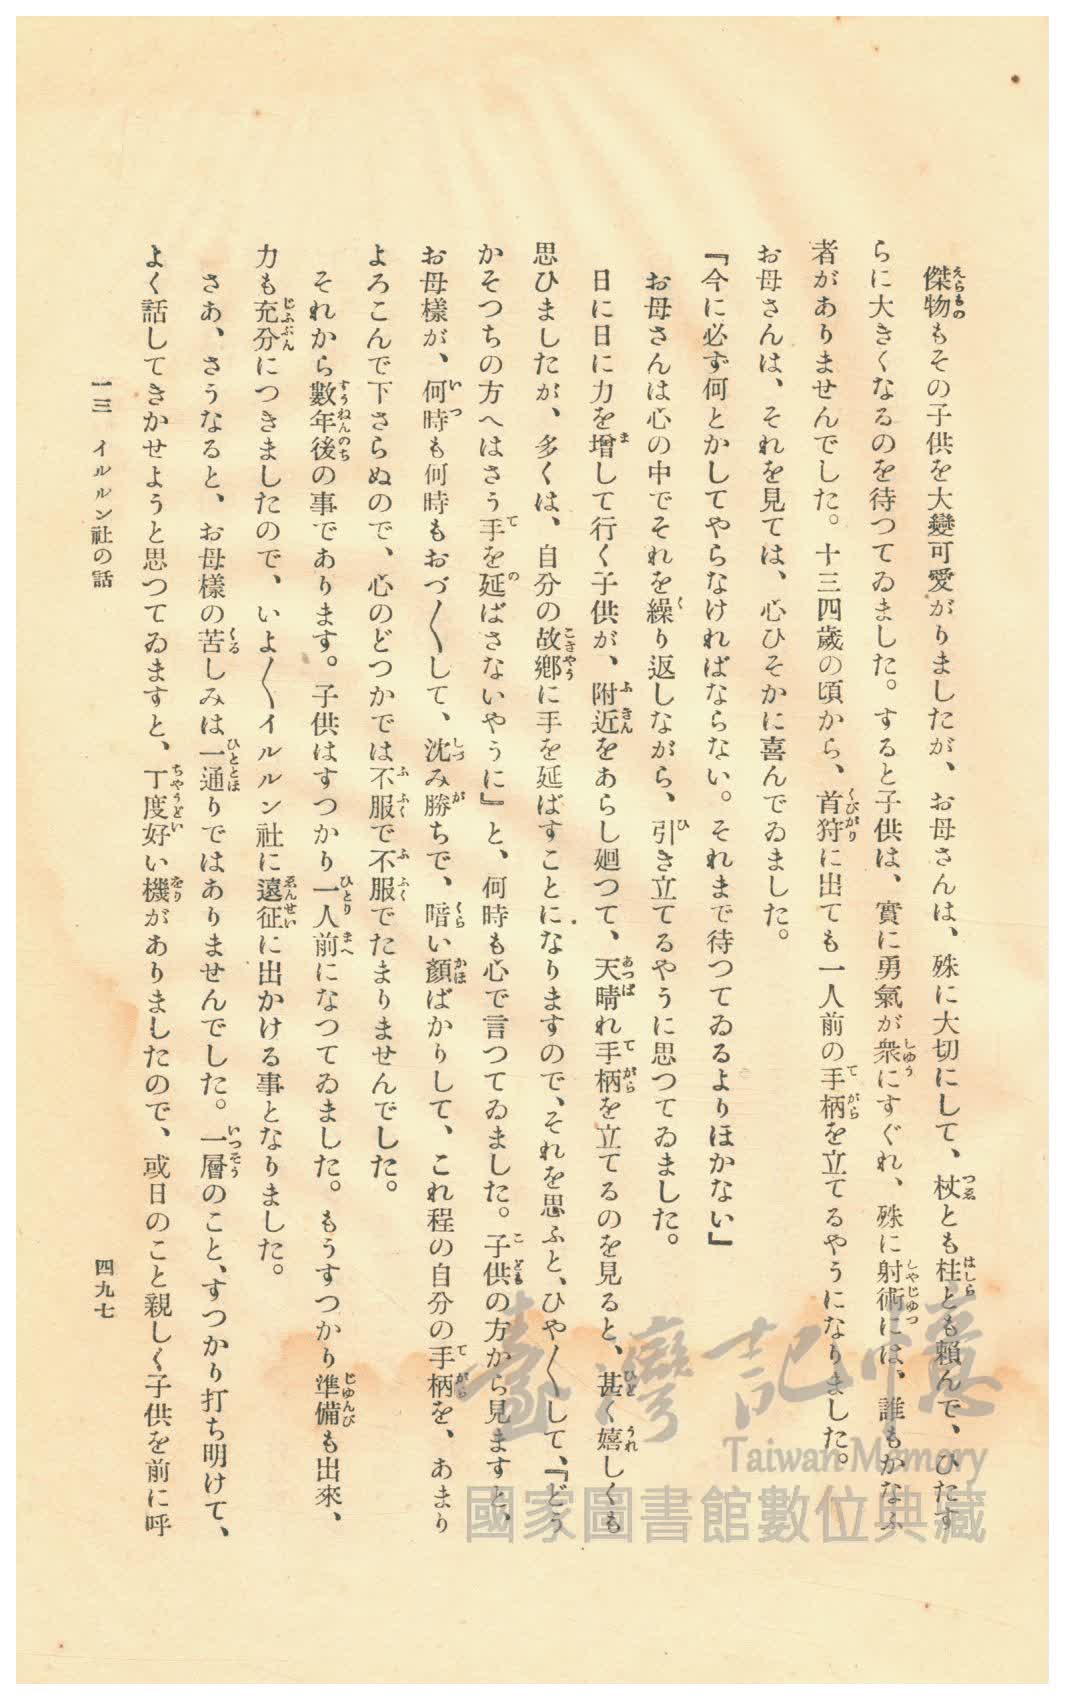 傑物もその子供を大變可愛がりましたが、お母さんは、殊に大切にして、杖とも柱とも賴んで、ひたす
らに大きくなるのを待つてゐました。すると子供は、實に勇氣が衆にすぐれ、殊に射術には、誰もかなふ
者がありませんでした。十三四歲の頃から、首狩に出ても一人前の手柄を立てるやうになりました。
お母さんは、それを見ては、心ひそかに喜んでゐました。
『今に必ず何とかしてやらなければならない。それまで待つてゐるよりほかない』
お母さんは心の中でそれを繰り返しながら、引き立てるやうに思つてゐました。
日に日に力を增して行く子供が、附近をあらし廻つて、天晴れ手柄を立てるのを見ると、甚く嬉しくも
思ひましたが、多くは、自分の故鄕に手を延ばすことになりますので、それを思ふと、ひや〱して、『どう
かそつちの方へはさう手を延ばさないやうに』と、何時も心で言つてゐました。子供の方から見ますと、
お母樣が、何時も何時もおづ〱して、沈み勝ちで、暗い顏ばかりして、これ程の自分の手柄を、あまり
よろこんで下さらぬので、心のどつかでは不服で不服でたまりませんでした。
それから數年後の事であります。子供はすつかり一人前になつてゐました。もうすつかり準備も出來、
力も充分につきましたので、いよ〱イルルン社に遠征に出かける事となりました。
さあ、さうなると、お母樣の苦しみは一通りではありませんでした。一層のこと、すつかり打ち明けて、
よく話してきかせようと思つてゐますと、丁度好い機がありましたので、或日のこと親しく子供を前に呼
一三 イルルン社の話
四九七
臺灣記憶
Taiwan Memory
國家圖書館數位典藏